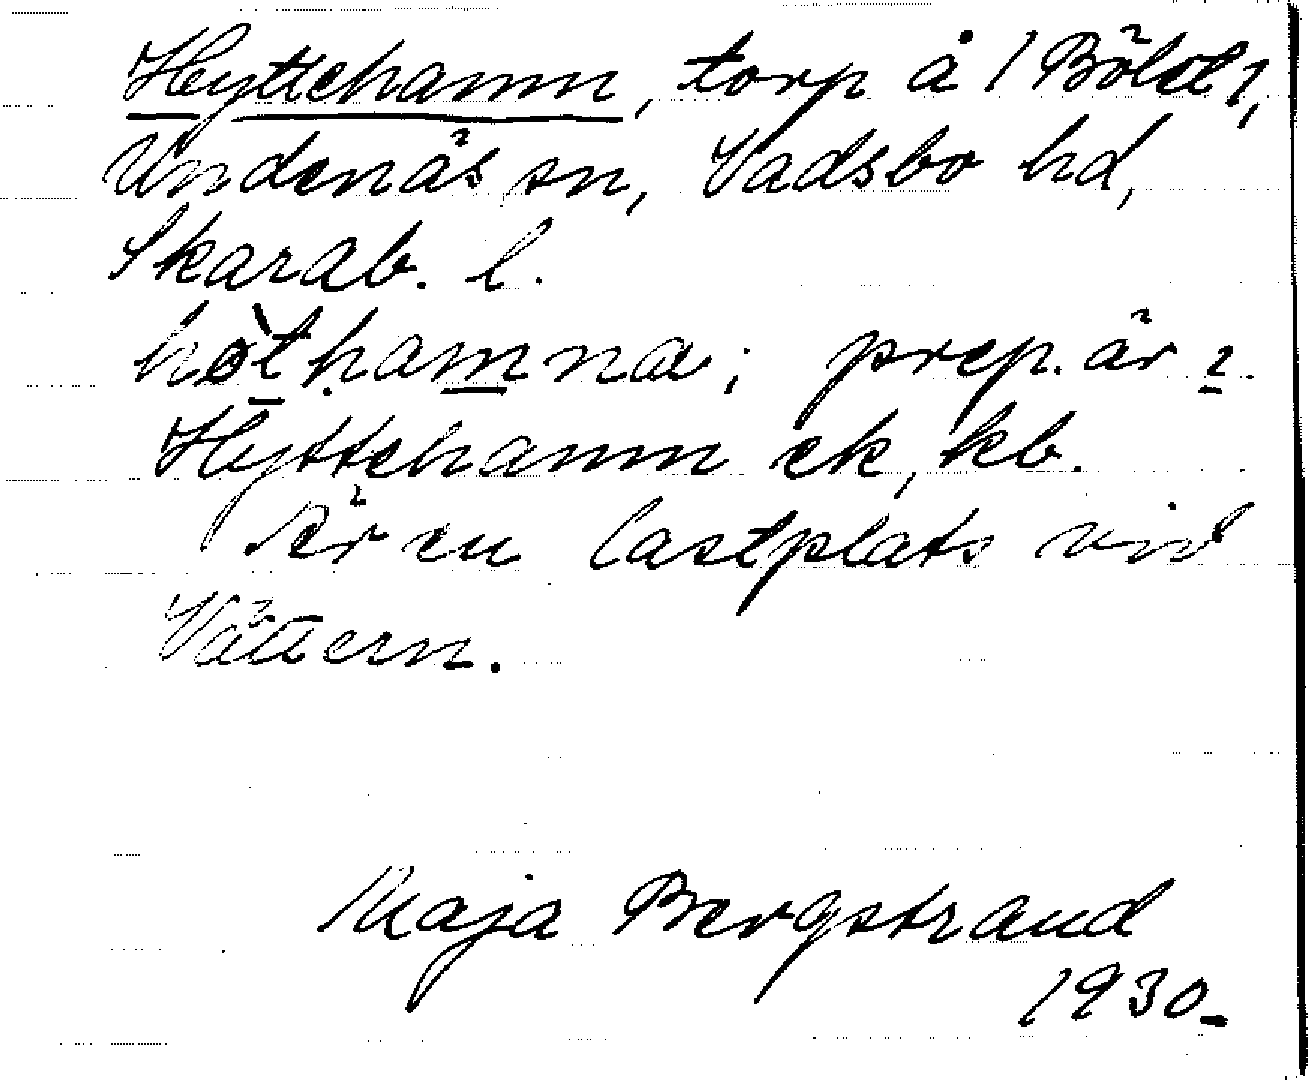 Hyttehamn, torp å 1 Bölet 1,
Undenäs sn, Vadsbo hd,
Skarab. l.
prep. är ı.
Hyttehamn ek, kb.
Är en lastplats vid
Vättern.
Maja Bergstrand
1930